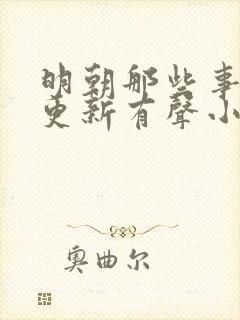 明朝那些事
更新有聲小
奥曲尔